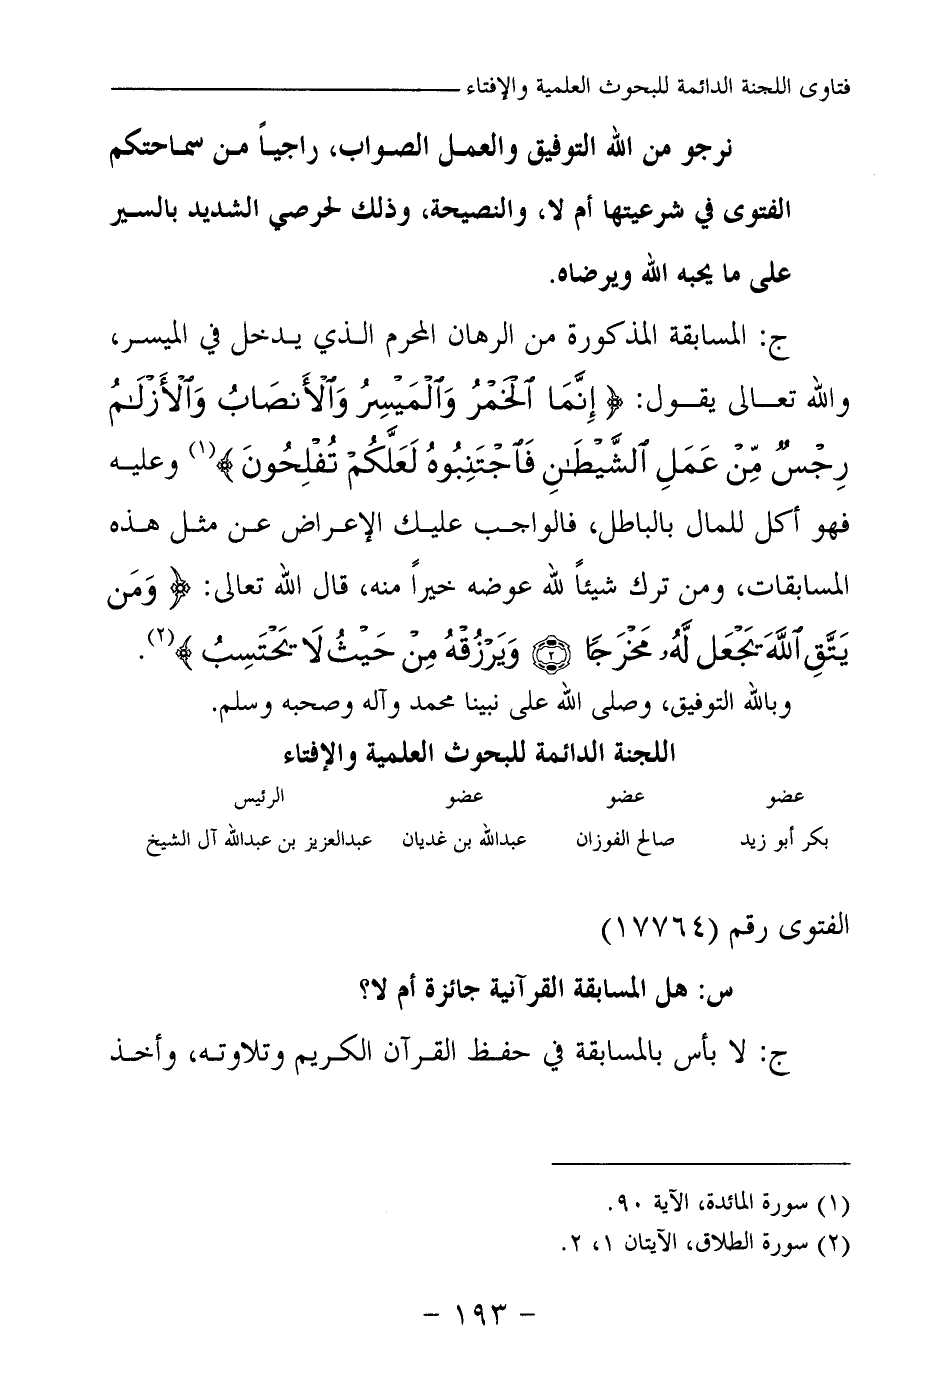 فتاوى اللجنة الدائمة للبحوث العلمية والإفتاء
نرجو من الله التوفيق والعمل الصواب، راجياً من سماحتكم
الفتوى في شرعيتها أم لا، والنصيحة، وذلك لحرصي الشديد بالسير
على ما يحبه الله ويرضاه.
ج: المسابقة المذكورة من الرهان المحرم الذي يدخل في الميسر،
والله تعالى يقول: ﴿ إِنَّمَا ٱلْخَمْرُ وَٱلْمَيْسِرُ وَٱلْأَنصَابُ وَٱلْأَزْلَـٰمُ
رِجْسٌ مِّنْ عَمَلِ ٱلشَّيْطَـٰنِ فَٱجْتَنِبُوهُ لَعَلَّكُمْ تُفْلِحُونَ ﴾(١) وعليه
فهو أكل للمال بالباطل، فالواجب عليك الإعراض عن مثل هذه
المسابقات، ومن ترك شيئاً لله عوضه خيراً منه، قال الله تعالى: ﴿ وَمَن
يَتَّقِ ٱللَّهَ يَجْعَل لَّهُۥ مَخْرَجًا ۝٢ وَيَرْزُقْهُ مِنْ حَيْثُ لَا يَحْتَسِبُ ﴾(٢).
وبالله التوفيق، وصلى الله على نبينا محمد وآله وصحبه وسلم.
اللجنة الدائمة للبحوث العلمية والإفتاء
عضو عضو عضو الرئيس
بكر أبو زيد صالح الفوزان عبدالله بن غديان عبدالعزيز بن عبدالله آل الشيخ
الفتوى رقم (١٧٧٦٤)
س: هل المسابقة القرآنية جائزة أم لا؟
ج: لا بأس بالمسابقة في حفظ القرآن الكريم وتلاوته، وأخذ
(١) سورة المائدة، الآية ٩٠.
(٢) سورة الطلاق، الآيتان ١، ٢.
- ١٩٣ -